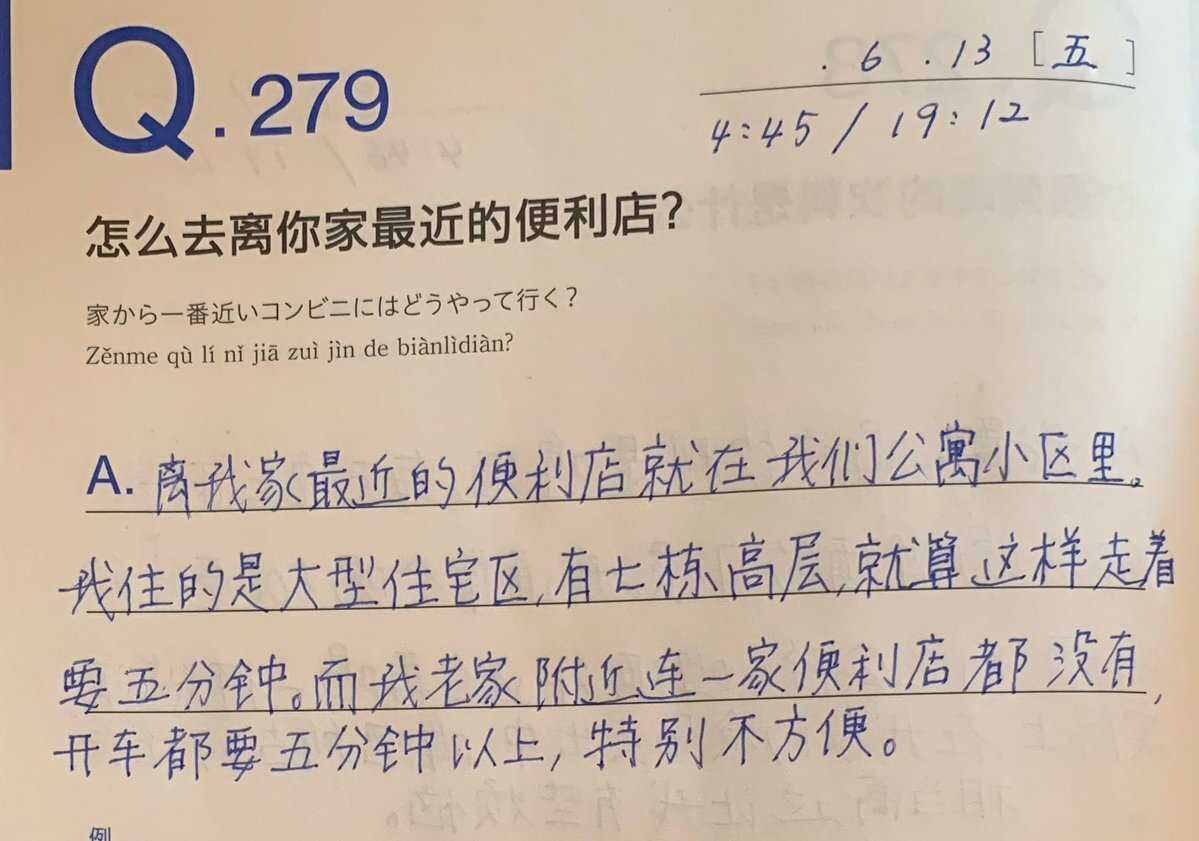 Q.279
.6.13[五]
4:45/19:12
怎么去离你家最近的便利店?
家から一番近いコンビニにはどうやって行く?
Zěnme qù lí nǐ jiā zuì jìn de biànlìdiàn?
A.离我家最近的便利店就在我们公寓小区里。
我住的是大型住宅区,有七栋高层,就算这样走着
要五分钟。而我老家附近连一家便利店都没有,
开车都要五分钟以上,特别不方便。
例